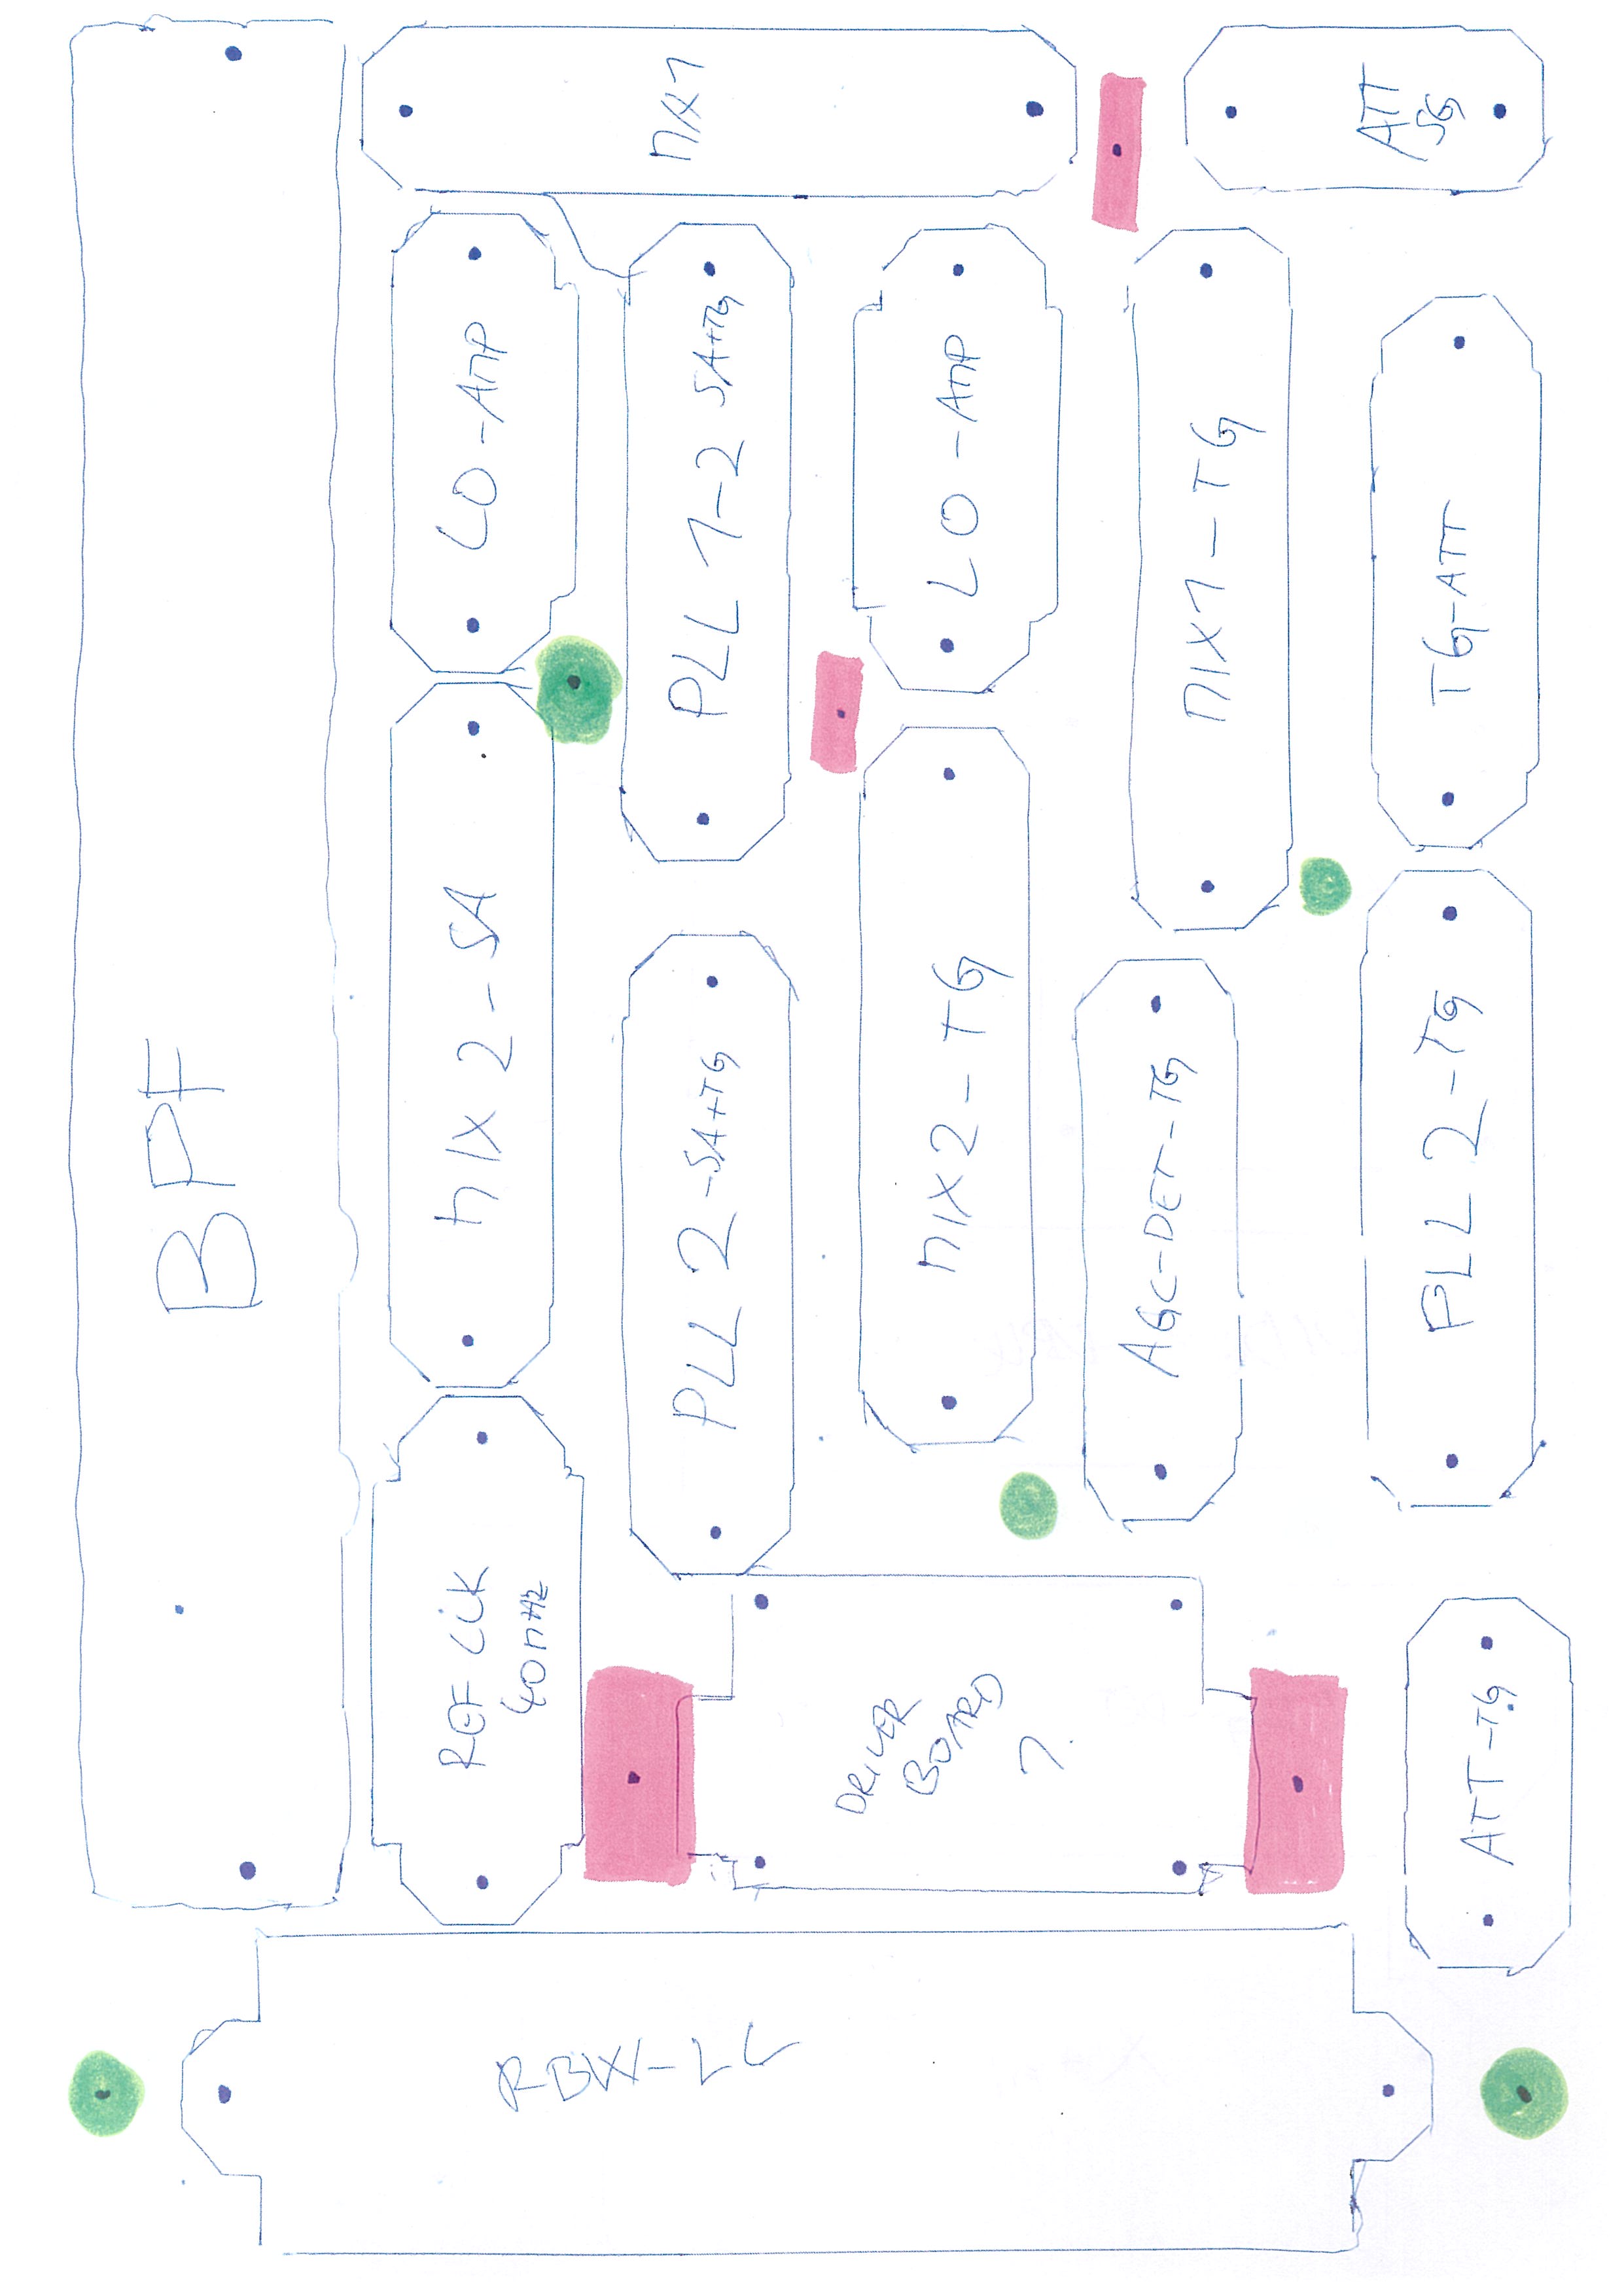 MIX1
ATT
SG
LO-AMP
PLL 1-2 SA+TG
LO-AMP
MIX1-TG
TG-ATT
BPF
MIX 2-SA
PLL 2-SA+TG
MIX2-TG
AGC-DET-TG
PLL 2-TG
REF CLK
40MHz
DRIVER
BOARD
?
ATT-TG
RBW-LC